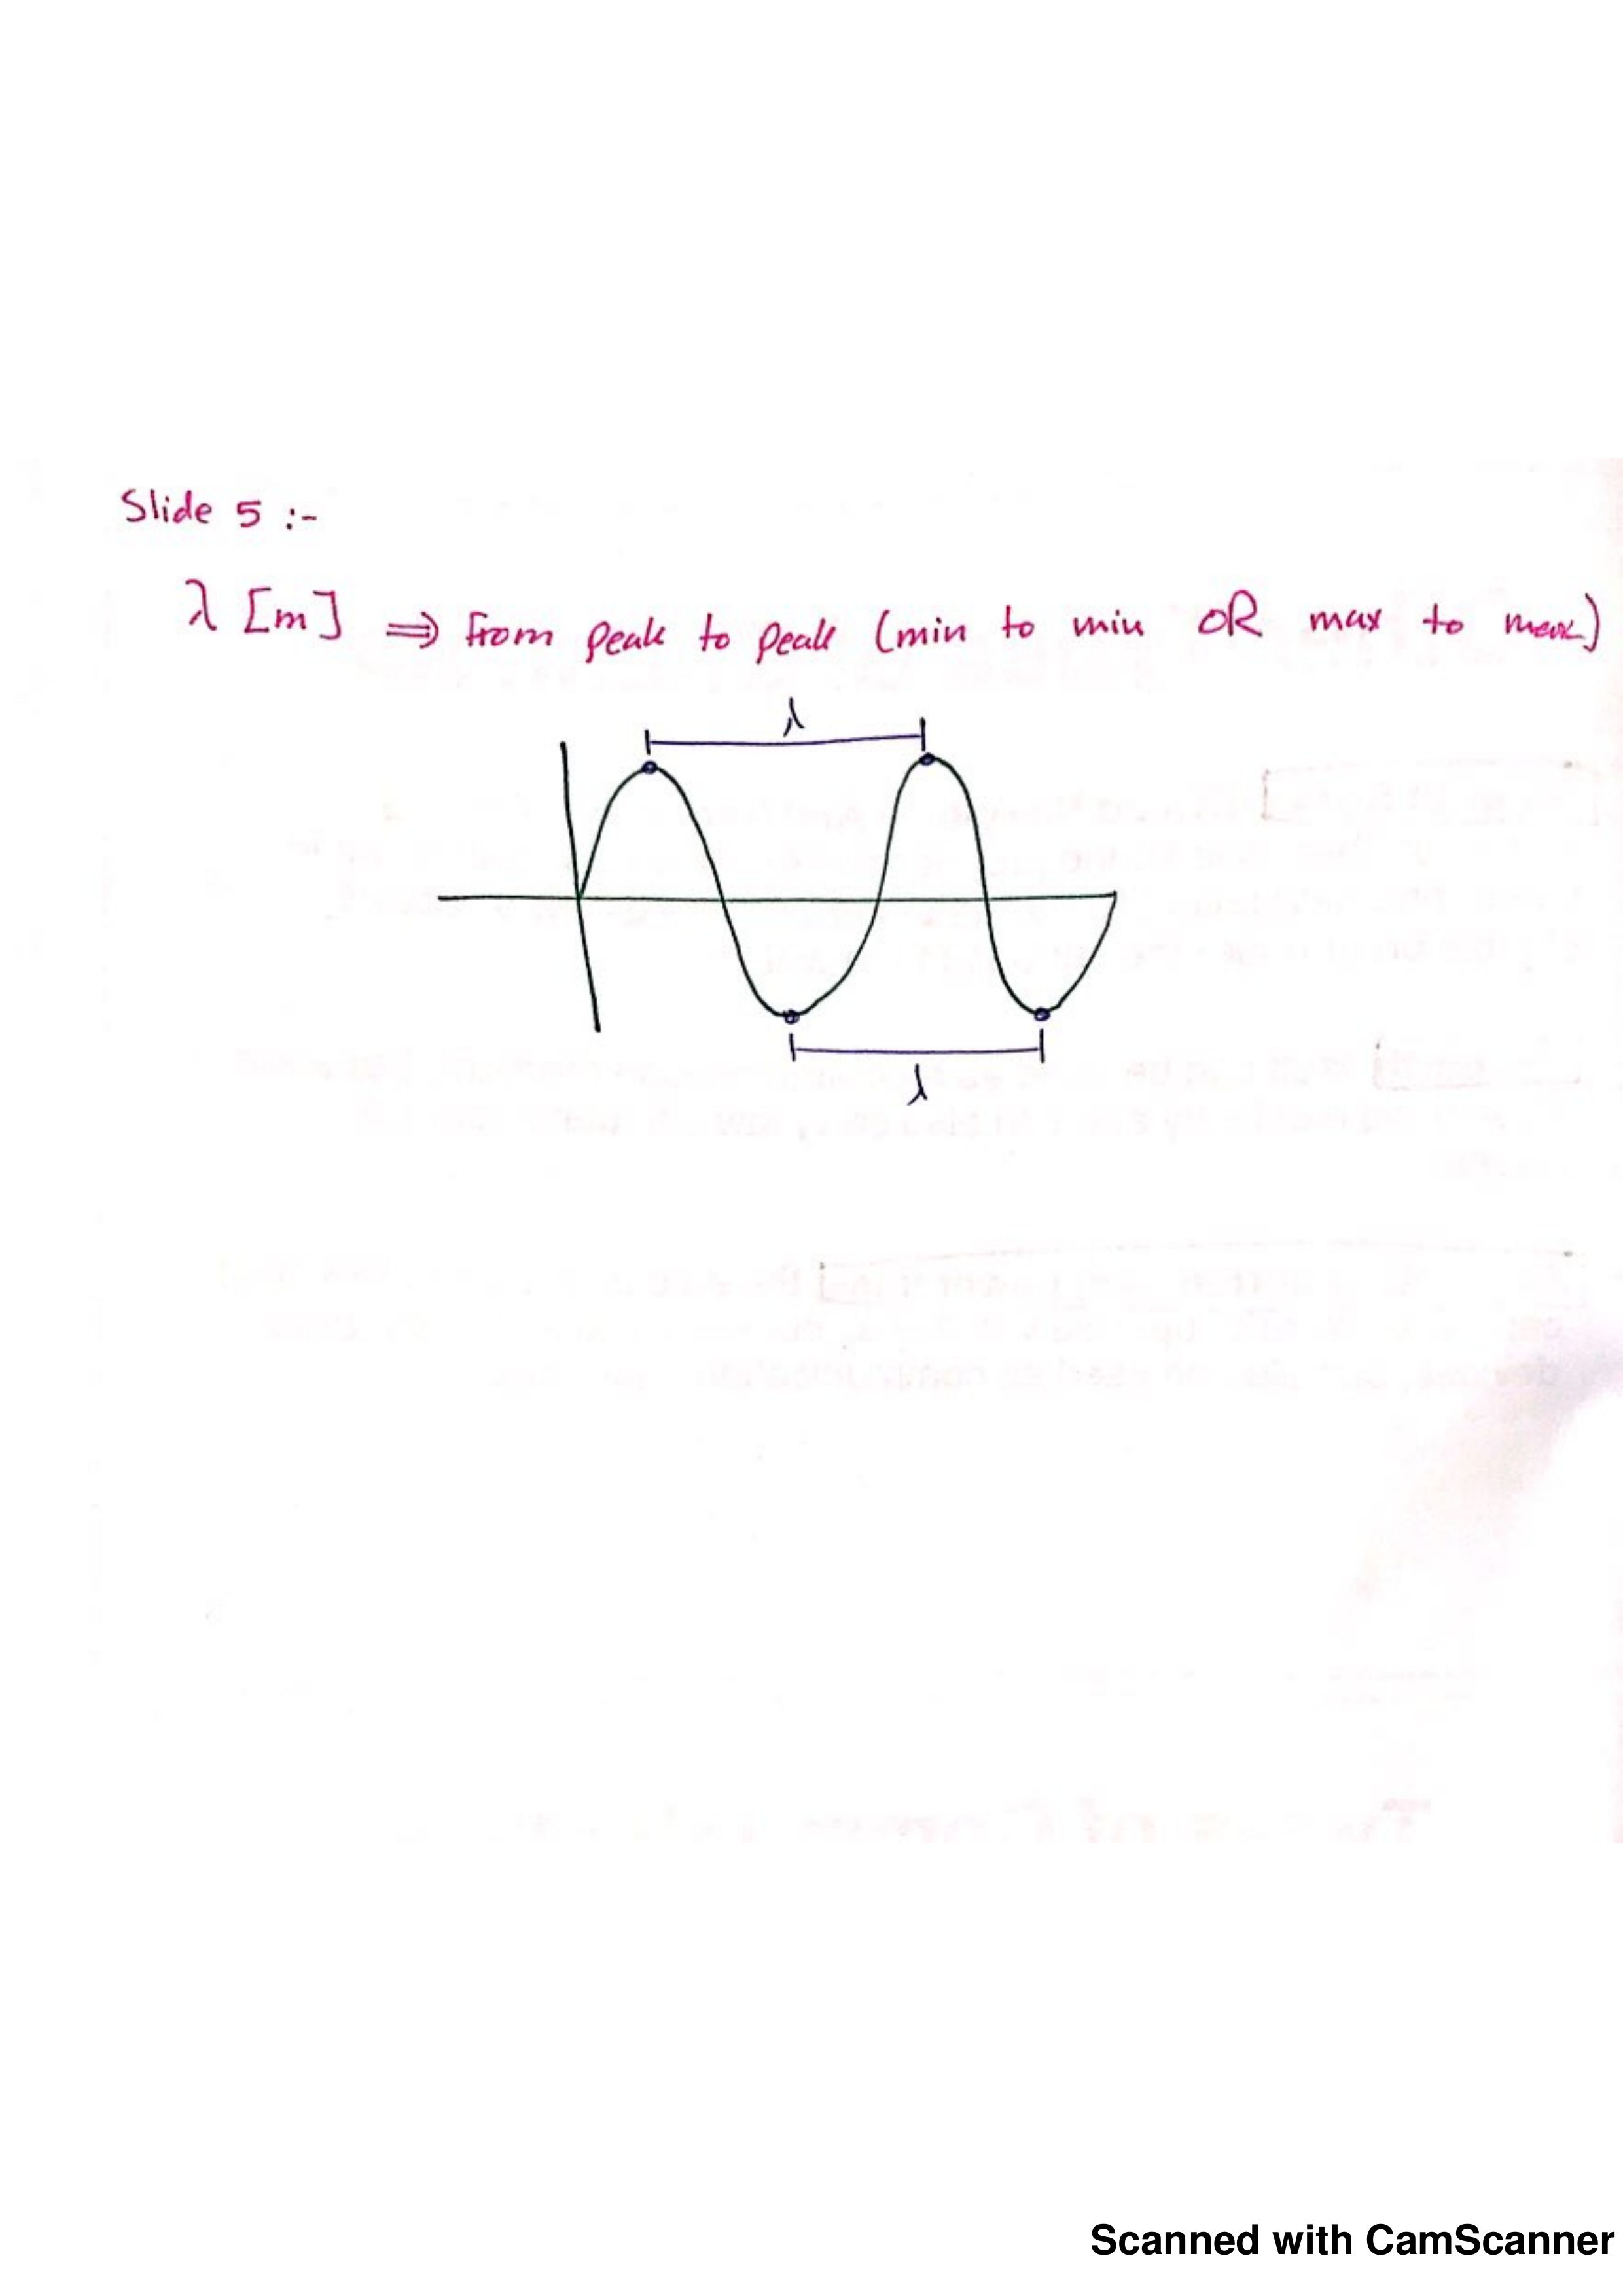 Slide 5 :-
λ [m] ⇒ from peak to peak (min to min OR max to max)
λ
λ
Scanned with CamScanner